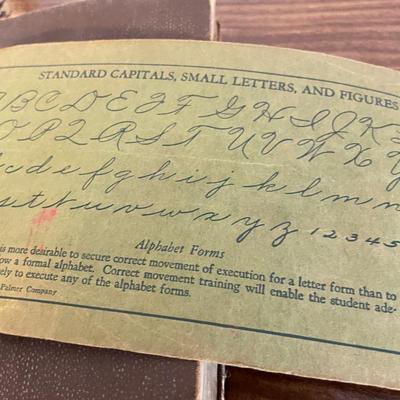 STANDARD CAPITALS, SMALL LETTERS, AND FIGURES
A B C D E F G H I J K
O P Q R S T U V W X Y
c d e f g h i j k l m n
s t t u v w x y z 1 2 3 4 5
Alphabet Forms
is more desirable to secure correct movement of execution for a letter form than to
ow a formal alphabet. Correct movement training will enable the student ade-
ely to execute any of the alphabet forms.
Palmer Company